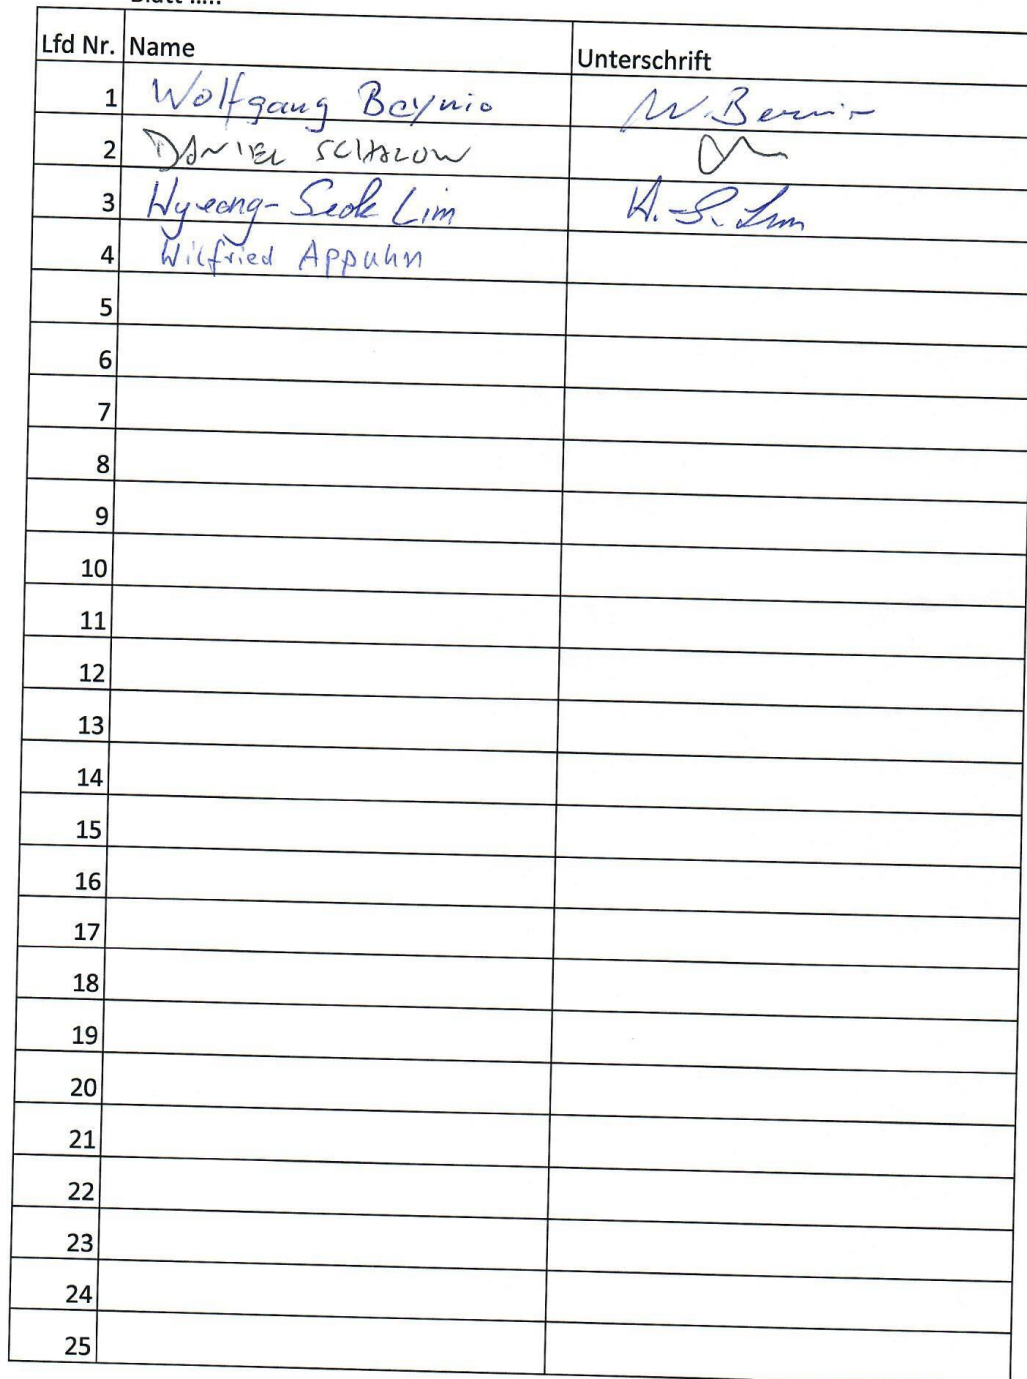 Lfd Nr. Name Unterschrift
1 Wolfgang Beynio
2 DANIEL SCHALOW
3 Hyeong-Seok Lim H.-S. Lim
4 Wilfried Appuhn
5
6
7
8
9
10
11
12
13
14
15
16
17
18
19
20
21
22
23
24
25